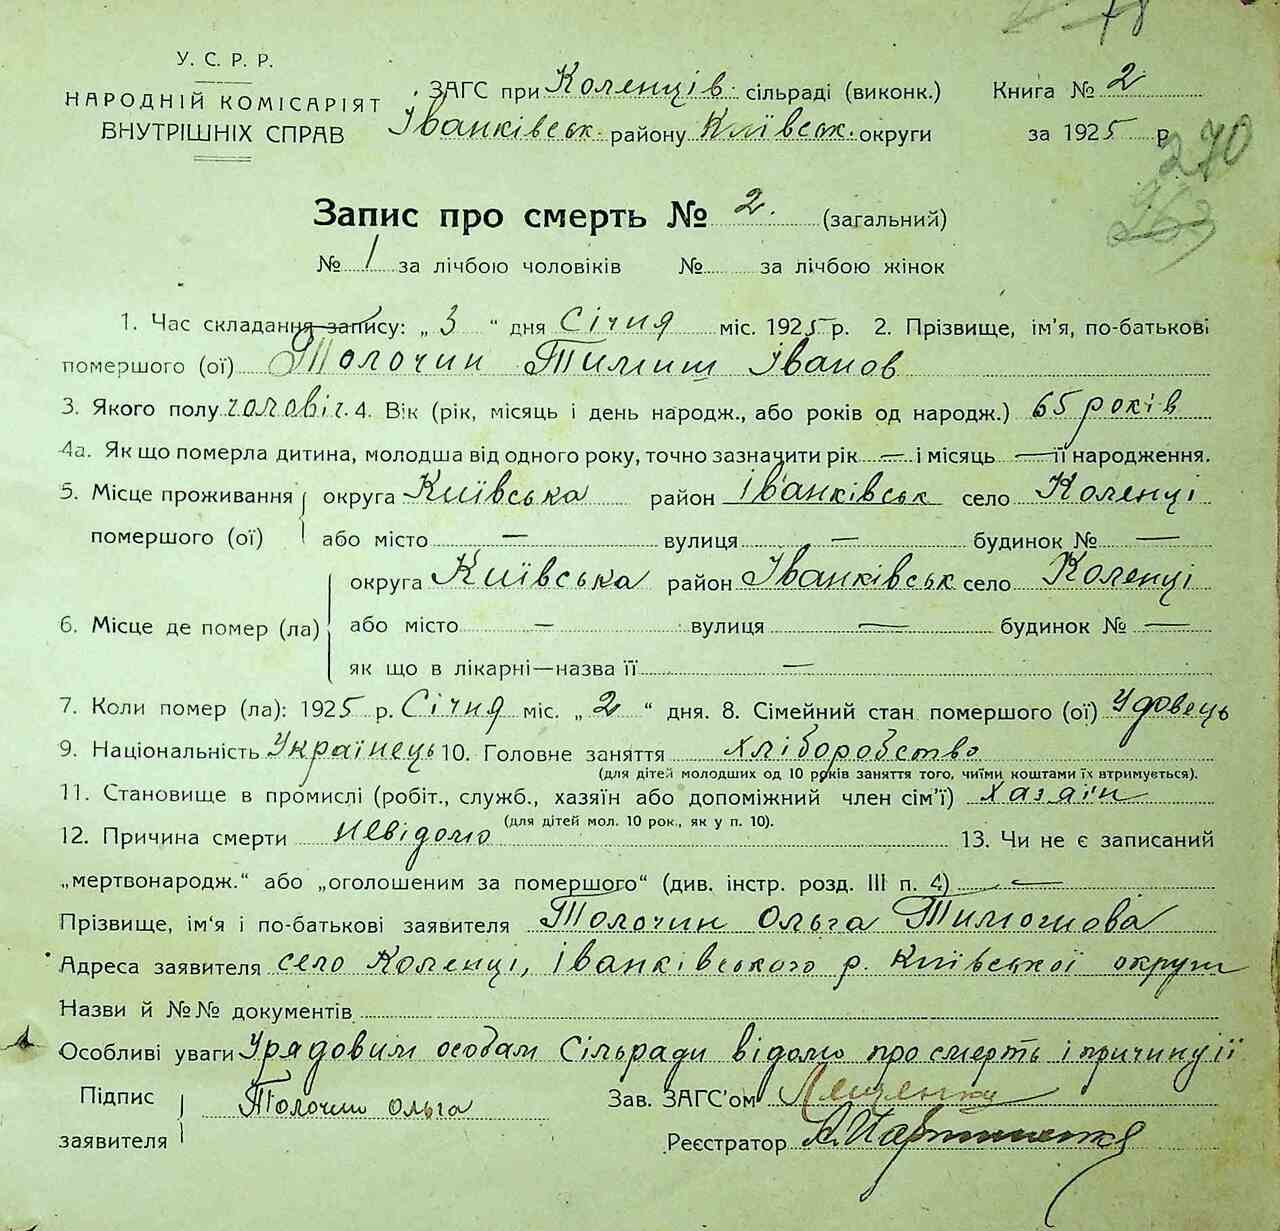 78
У. С. Р. Р.
НАРОДНІЙ КОМІСАРІЯТ
ВНУТРІШНІХ СПРАВ
ЗАГС при Коленців. сільраді (виконк.)
Іванківськ. району Київськ. округи
Книга № 2
за 1925 р.
270
Запис про смерть № 2. (загальний)
№ 1 за лічбою чоловіків № за лічбою жінок
1. Час складання запису: „ 3 “ дня Січня міс. 1925 р. 2. Прізвище, ім'я, по-батькові
помершого (ої) Толочин Тимиш Іванов
3. Якого полу чоловіч. 4. Вік (рік, місяць і день народж., або років од народж.) 65 років
4а. Як що померла дитина, молодша від одного року, точно зазначити рік — і місяць — її народження.
5. Місце проживання помершого (ої) округа Київська район Іванківськ село Коленці
або місто — вулиця — будинок № —
6. Місце де помер (ла) округа Київська район Іванківськ село Коленці
або місто — вулиця — будинок № —
як що в лікарні—назва її —
7. Коли помер (ла): 1925 р. Січня міс. „ 2 “ дня. 8. Сімейний стан помершого (ої) Удовець
9. Національність Українець 10. Головне заняття хліборобство
(для дітей молодших од 10 років заняття того, чиїми коштами їх втримується).
11. Становище в промислі (робіт., служб., хазяїн або допоміжний член сім'ї) хазаїн
(для дітей мол. 10 рок., як у п. 10).
12. Причина смерти невідомо 13. Чи не є записаний
„мертвонародж.“ або „оголошеним за помершого“ (див. інстр. розд. III п. 4) —
Прізвище, ім'я і по-батькові заявителя Толочин Ольга Тимошова
Адреса заявителя село Коленці, Іванківського р. Київської округи
Назви й №№ документів
Особливі уваги Урядовим особам Сільради відомо про смерть і причину її
Підпис заявителя Толочин Ольга
Зав. ЗАГС'ом
Реєстратор